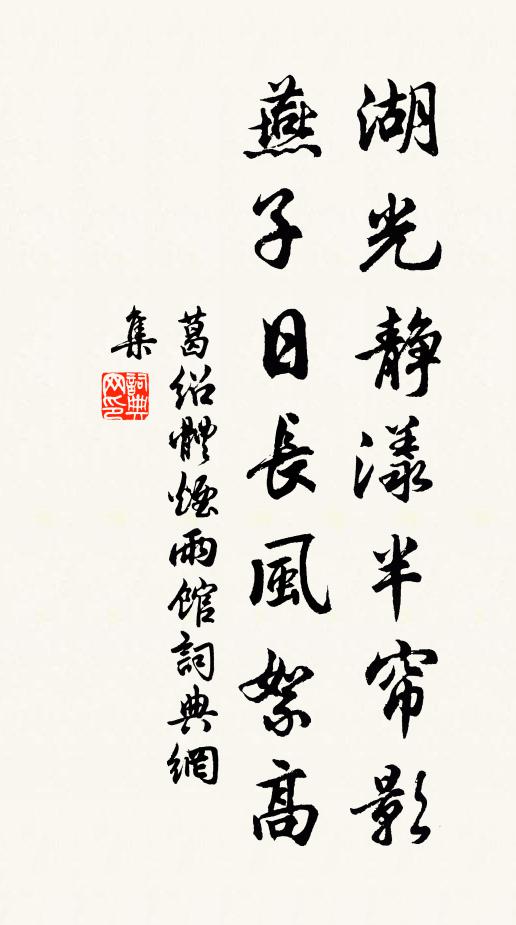 湖光静漾半帘影
燕子日長風絮高
葛紹體煙雨館詞典網
集
詞典
网印